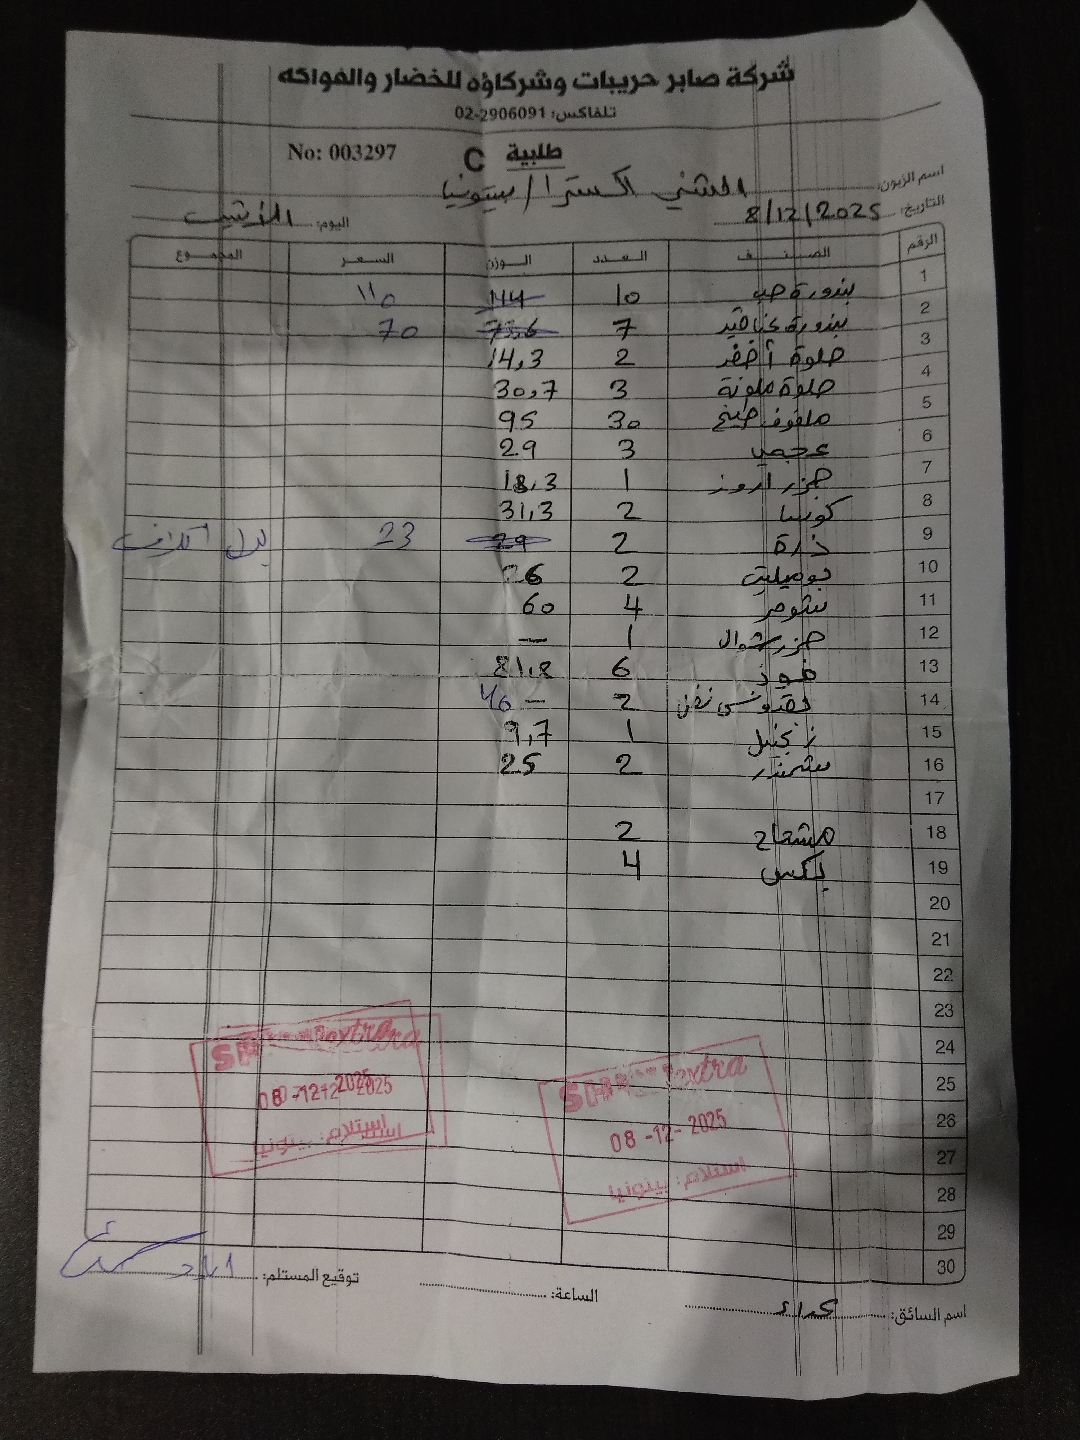 شركة صابر حريبات وشركاؤه للخضار والفواكه
تلفاكس: 02-2906091
No: 003297 C طلبية
اسم الزبون: الشني اكسترا / بيتونيا
التاريخ: 8/12/2025 اليوم: الاثنين
الرقم الصنف العدد الوزن السعر المجموع
1 بندورة حب 10 144 110
2 بندورة عناقيد 7 75,6 70
3 حلوة أخضر 2 14,3
4 حلوة ملونة 3 30,7
5 ملفوف صيني 30 95
6 عجمي 3 29
7 جزر اروز 1 18,3
8 كوسا 2 31,3
9 ذرة 2 29 23 بدل
10 بوميليت 2 26
11 شومر 4 60
12 جزر شوال 1 —
13 موز 6 81,8
14 بقدونسي 2 —
15 زنجبيل 1 9,7
16 شمندر 2 25
17
18 مشطاح 2
19 بكس 4
20
21
22
23
24
25
26
27
28
29
30
extra
08-12-2025
استلام: بيتونيا
extra
08-12-2025
استلام: بيتونيا
اسم السائق: الساعة: توقيع المستلم: